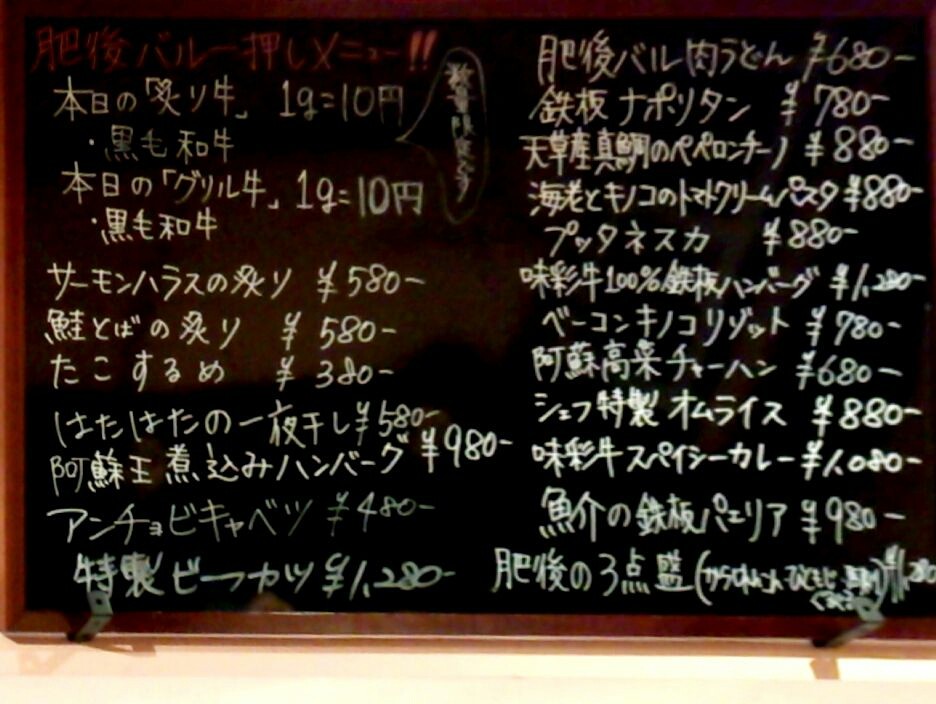 肥後バル一押しメニュー!!
数量限定です
本日の「炙り牛」 1g=10円
・黒毛和牛
本日の「グリル牛」 1g=10円
・黒毛和牛
サーモンハラスの炙り ¥580-
鮭とばの炙り ¥580-
たこするめ ¥380-
はたはたの一夜干し ¥580-
阿蘇王煮込みハンバーグ ¥980-
アンチョビキャベツ ¥480-
特製ビーフカツ ¥1,280-
肥後バル肉うどん ¥680-
鉄板ナポリタン ¥780-
天草産真鯛のペペロンチーノ ¥880-
海老とキノコのトマトクリームパスタ ¥880-
プッタネスカ ¥880-
味彩牛100%鉄板ハンバーグ ¥1,280-
ベーコンキノコリゾット ¥780-
阿蘇高菜チャーハン ¥680-
シェフ特製オムライス ¥880-
味彩牛スパイシーカレー ¥1,080-
魚介の鉄板パエリア ¥980-
肥後の3点盛